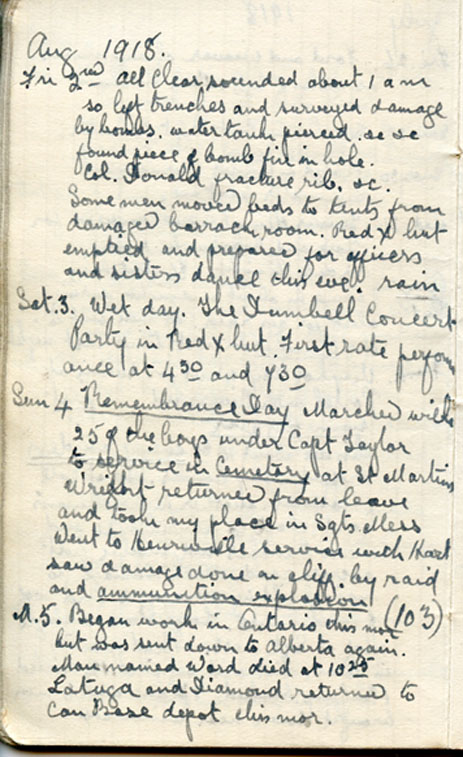 Aug 1918.
Fri 2nd All Clear sounded about 1 am
so left trenches and surveyed damage
by bombs. water tank pierced. &c &c
found piece of bomb fire in hole.
Col. Donald fracture rib. &c.
Some men moved beds to tents from
damaged barrack room. Red X hut
emptied and prepared for officers
and sisters dance this eve. rain
Sat. 3. Wet day. The Dumbell Concert
Party in Red X hut. First rate perform
ance at 4 30 and 7 30
Sun 4 Remembrance Day Marched with
25 of the boys under Capt Taylor
to service in Cemetery at St Martins
Wright returned from leave
and took my place in Sgts. Mess
Went to service with Hart
saw damage done on cliff by raid
and ammunition explosion
(103)
M. 5. Began work in Ontario this mor
but was sent down to Alberta again.
Man named Ward died at 10 25
and Diamond returned to
Can Base depot this mor.